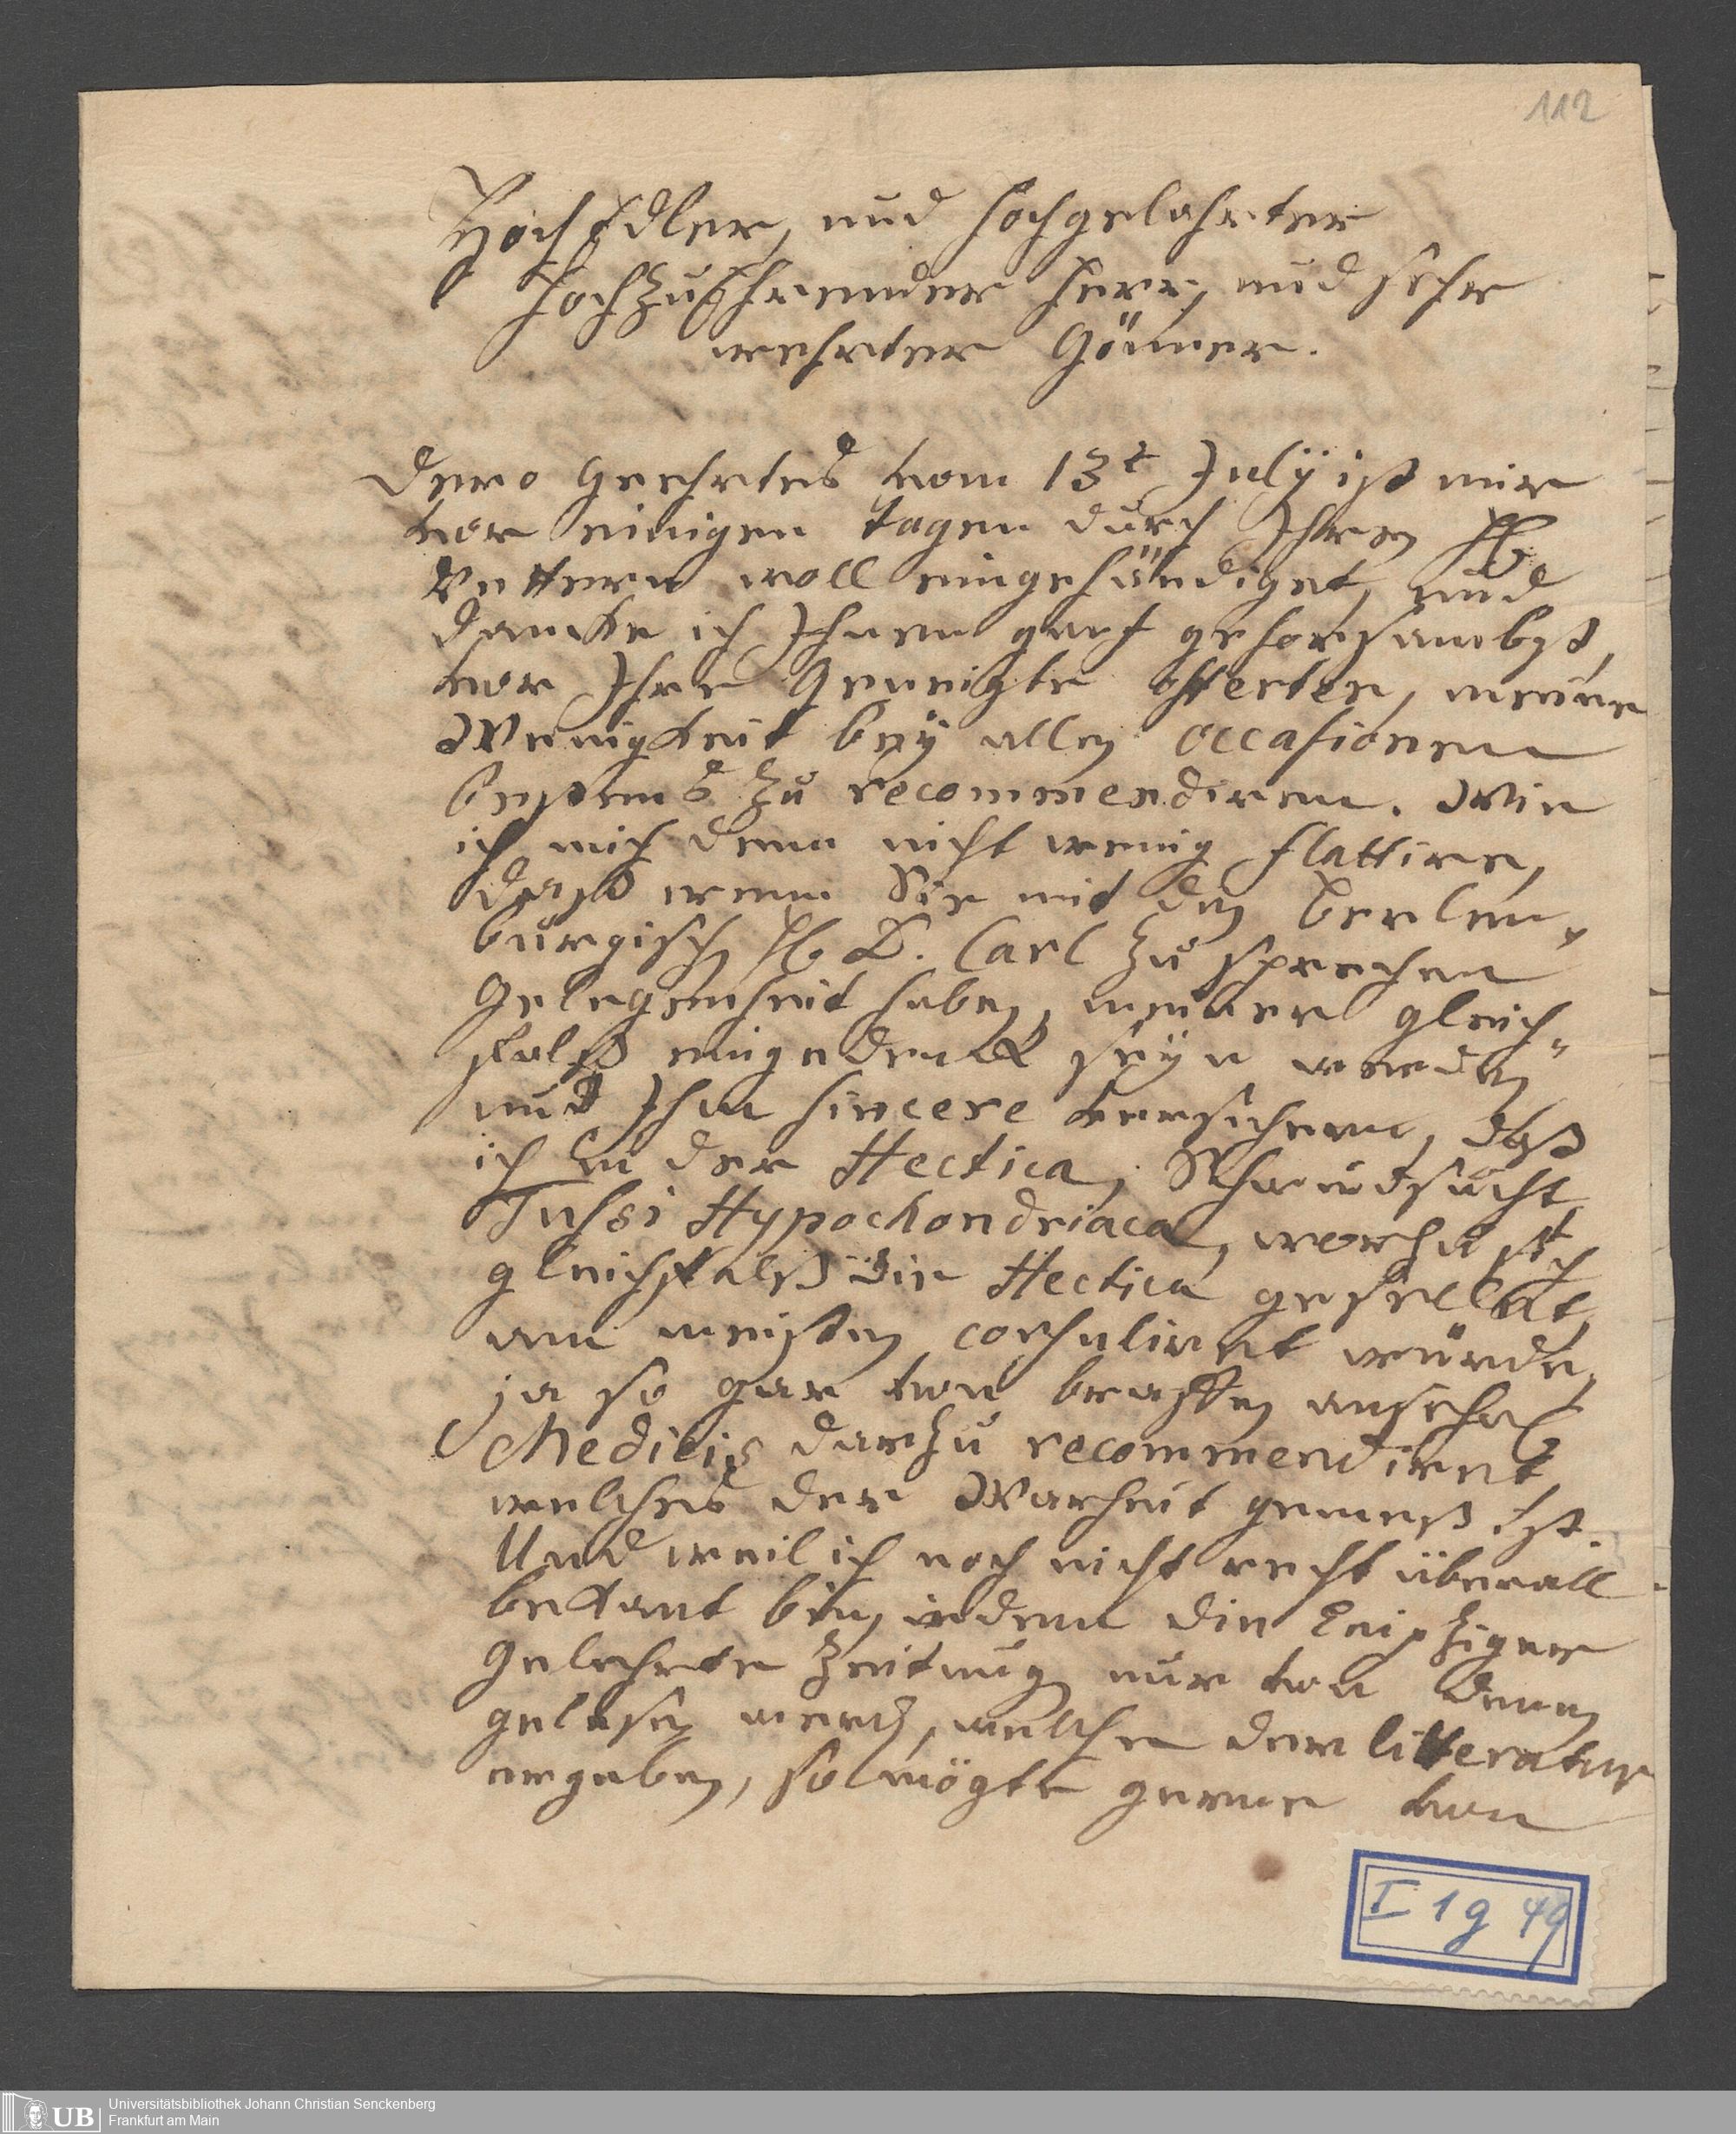 112
HochEdler, und Hochgelahrter
HochzuEhrender Herr, und sehr
wehrter Gönner.
Dero Geehrtes vom 13t July ist mir
vor einigen Tagen durch Ihren H.
Vettern woll eingehändiget, und
dancke ich Ihnen gantz gehorsambst,
vor Ihre Geneigte offerten, meine
Wenigkeit bey allen occasionen
bestens zu recommendiren. Wie
ich mich denn nicht wenig flattire,
dass wenn Sie mit den Berlen„
burgisch H D. Carl zu sprechen
Gelegenheit haben, meiner gleich„
falß eingedenck seyn werden
und Ihm sincere versichern, daß
ich in der Hectica, Schwindsucht
Tussi Hypochondriaca, worzu sich
gleichfalß die Hectica gesellet,
am meisten consuliret würde,
ja so gar von braffen
Medicis darzu recommendiret
welches der Warheit gemeß ist.
Und weil ich noch nicht recht überall
bekant bin, indem die Leipziger
Gelehrte Zeitung nur von denen
gelesen werd, welche der litteratur
ergeben, so mögte gerne von
I 1 g 49
UB
Universitätsbibliothek Johann Christian Senckenberg
Frankfurt am Main